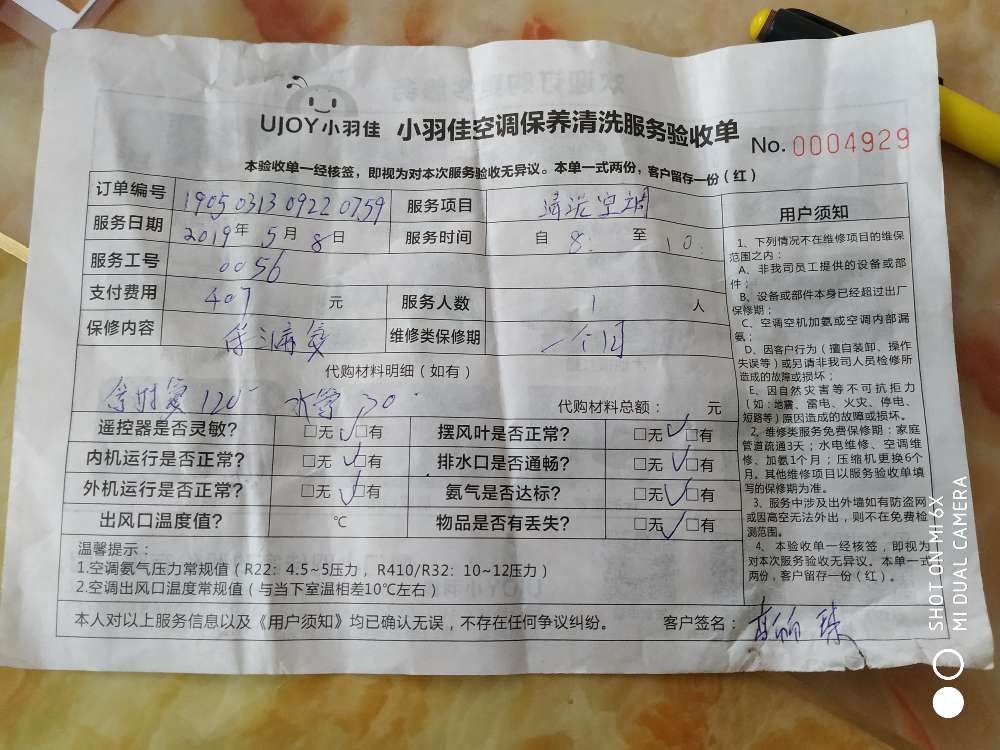 UJOY小羽佳 小羽佳空调保养清洗服务验收单 No.0004929
本验收单一经核签，即视为对本次服务验收无异议。本单一式两份，客户留存一份（红）
订单编号 1905031309220759 服务项目 清洗空调
服务日期 2019年5月8日 服务时间 自 8: 至 10:
服务工号 0056
支付费用 407 元 服务人数 1 人
保修内容 维修类保修期 一个月
代购材料明细（如有）
120 水管 30 代购材料总额： 元
遥控器是否灵敏? □无 ✓□有 摆风叶是否正常? □无 ✓□有
内机运行是否正常? □无 ✓□有 排水口是否通畅? □无 ✓□有
外机运行是否正常? □无 ✓□有 氨气是否达标? □无 ✓□有
出风口温度值? ℃ 物品是否有丢失? □无 ✓□有
温馨提示：
1.空调氨气压力常规值（R22：4.5~5压力，R410/R32：10~12压力）
2.空调出风口温度常规值（与当下室温相差10℃左右）
本人对以上服务信息以及《用户须知》均已确认无误，不存在任何争议纠纷。 客户签名：
用户须知
1、下列情况不在维修项目的维保
范围之内：
A、非我司员工提供的设备或部
件；
B、设备或部件本身已经超过出厂
保修期；
C、空调空机加氨或空调内部漏
氨；
D、因客户行为（擅自装卸、操作
失误等）或另请非我司人员检修所
造成的故障或损坏；
E、因自然灾害等不可抗拒力
（如：地震、雷电、火灾、停电、
短路等）原因造成的故障或损坏。
2、维修类服务免费保修期：家庭
管道疏通3天；水电维修、空调维
修、加氨1个月；压缩机更换6个
月。其他维修项目以服务验收单填
写的保修期为准。
3、服务中涉及出外墙如有防盗网
或因高空无法外出，则不在免费检
测范围。
4、本验收单一经核签，即视为
对本次服务验收无异议。本单一式
两份，客户留存一份（红）。
SHOT ON MI 6X
MI DUAL CAMERA